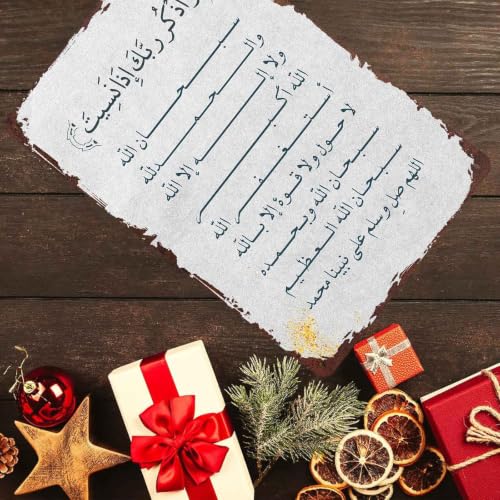 واذكر ربك إذا نسيت
سبحان الله
والحمد لله
ولا إله إلا الله
الله أكبر
أستغفر الله
لا حول ولا قوة إلا بالله
سبحان الله وبحمده
سبحان الله العظيم
اللهم صل وسلم على نبينا محمد